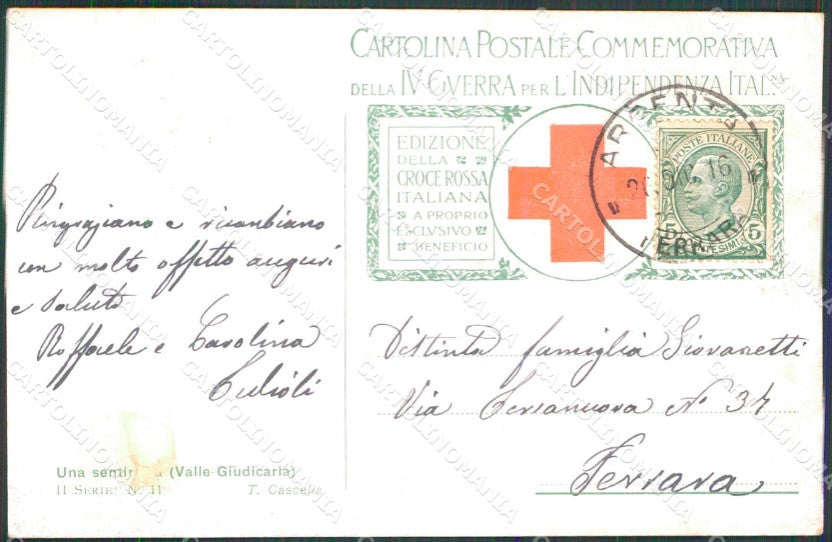 CARTOLINA POSTALE COMMEMORATIVA
DELLA IV GVERRA PER L'INDIPENDENZA ITAL.
EDIZIONE
DELLA
CROCE ROSSA
ITALIANA
A PROPRIO
ESCLVSIVO
BENEFICIO
ARGENTA
16
FERRARA
POSTE ITALIANE
5
Ringraziano e ricambiano
con molto affetto auguri
e saluti
Raffaele e Carolina
Distinta famiglia Giovanetti
Via Terranuova No 34
Ferrara
Una sentin a (Valle Giudicaria)
II SERIE: N. 11
T. Cascella
CARTOLINOMANIA